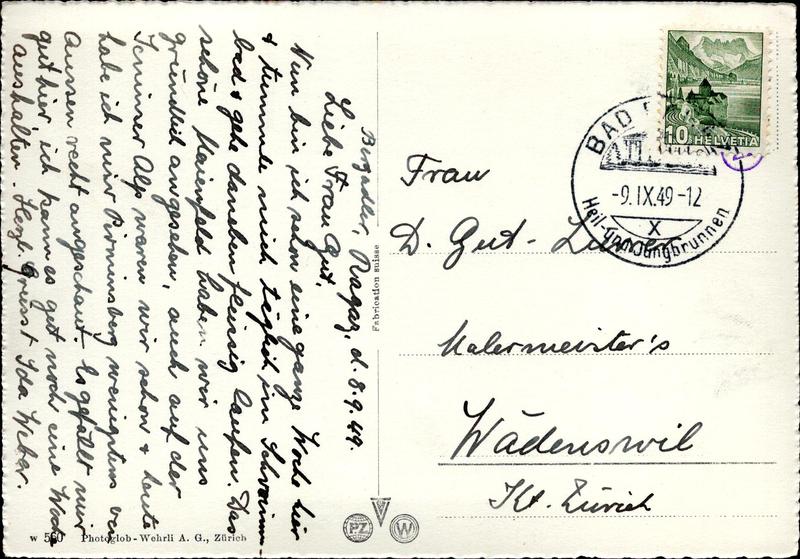 Bergadler, Ragaz, d. 8.9.49.
Liebe Frau Gut,
Nun bin ich schon eine ganze Woche hier
& tummle mich täglich im Schwimm
bad & gehe daneben fleissig laufen. Das
schöne Maienfeld haben wir uns
gründlich angesehen, auch auf der
Alp waren wir schon & heute
habe ich mir Pirminsberg wenigstens von
Aussen recht angeschaut. Es gefällt mir
gut hier, ich kann es gut noch eine Woche
aushalten. Herzl. Grüsst Ida Weber.
w 560 Photoglob-Wehrli A. G., Zürich
Fabrication suisse
PZ W
10 HELVETIA
BAD
-9.IX.49-12
X
Heil- und Jungbrunnen
Frau
D. Gut-
Malermeister's
Wädenswil
Kt. Zürich